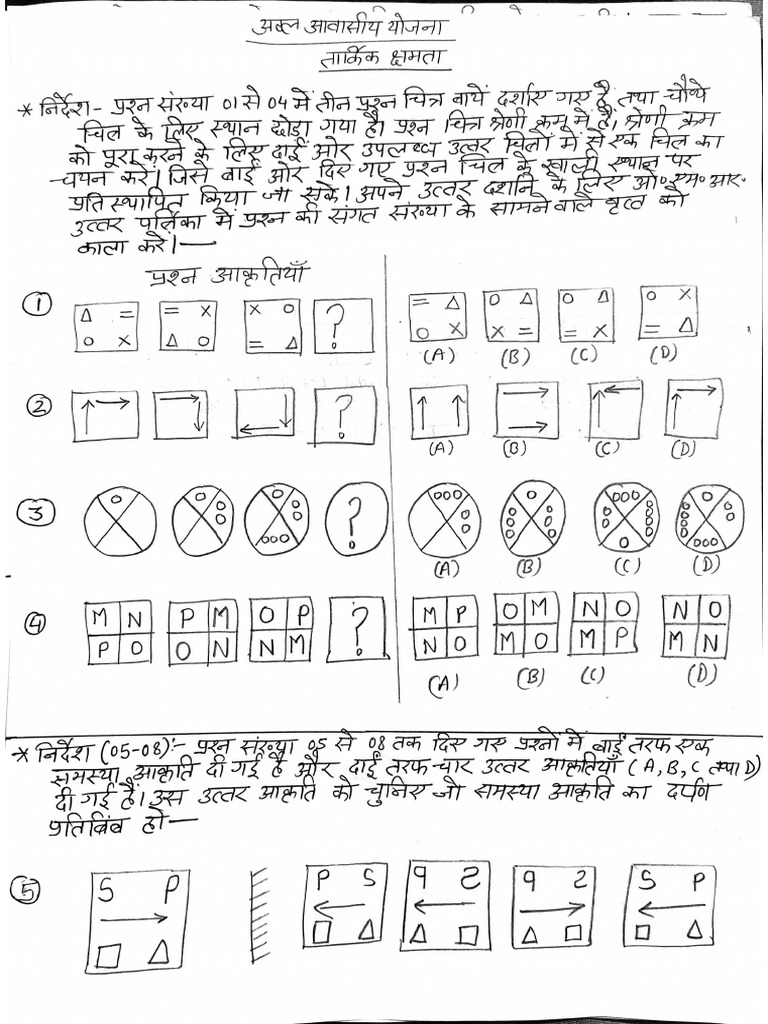 अव्ल आवासीय योजना
तार्किक क्षमता
* निर्देश - प्रश्न संख्या 01 से 04 में तीन प्रश्न चित्र बायें दर्शाए गए हैं, तथा चौथे
चित्र के लिए स्थान छोड़ा गया है। प्रश्न चित्र श्रेणी क्रम में हैं। श्रेणी क्रम
को पूरा करने के लिए दाईं ओर उपलब्ध उत्तर चित्रों में से एक चित्र का
चयन करें। जिसे बाईं ओर दिए गए प्रश्न चित्र के खाली स्थान पर
प्रतिस्थापित किया जा सके। अपने उत्तर दर्शाने के लिए ओ॰एम॰आर॰
उत्तर पुस्तिका में प्रश्न की संगत संख्या के सामने वाले वृत्त को
काला करें।—
प्रश्न आकृतियाँ
① Δ = O X = X Δ O X O = Δ ? = Δ O X O Δ X = O Δ = X O X = Δ
(A) (B) (C) (D)
② ↑ → → ↓ ↓ ← ? ↑ ↑ → → ← ↑ → ↑
(A) (B) (C) (D)
③ ?
(A) (B) (C) (D)
④ M N P M O P ? M P O M N O N O
P O O N N M N O M O M P M N
(A) (B) (C) (D)
* निर्देश (05-08):- प्रश्न संख्या 05 से 08 तक दिए गए प्रश्नों में बाईं तरफ एक
समस्या आकृति दी गई है और दाईं तरफ चार उत्तर आकृतियाँ (A, B, C तथा D)
दी गई हैं। उस उत्तर आकृति को चुनिए जो समस्या आकृति का दर्पण
प्रतिबिंब हो—
⑤ S P → □ Δ P S ← □ Δ 9 2 ← Δ □ 9 2 → Δ □ S P ← □ Δ